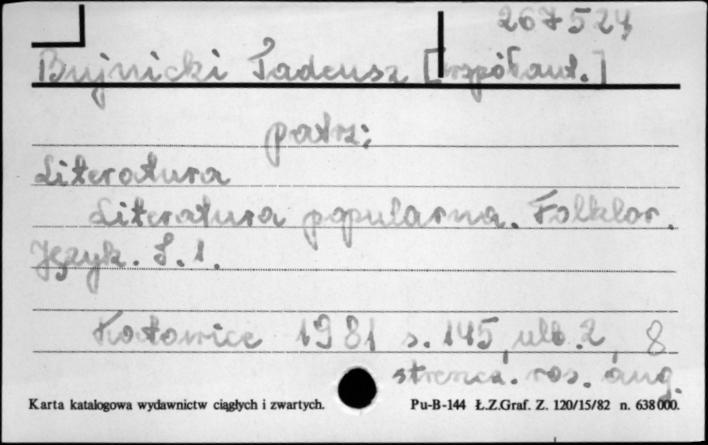 267524
Bujnicki Tadeusz [współaut.]
patrz:
Literatura
Literatura popularna. Folklor.
Język. S.1.
Katowice 1981 s. 145, ulb. 2, 8
streszcz. ros. ang.
Karta katalogowa wydawnictw ciągłych i zwartych.
Pu-B-144 Ł.Z.Graf. Z. 120/15/82 n. 638000.